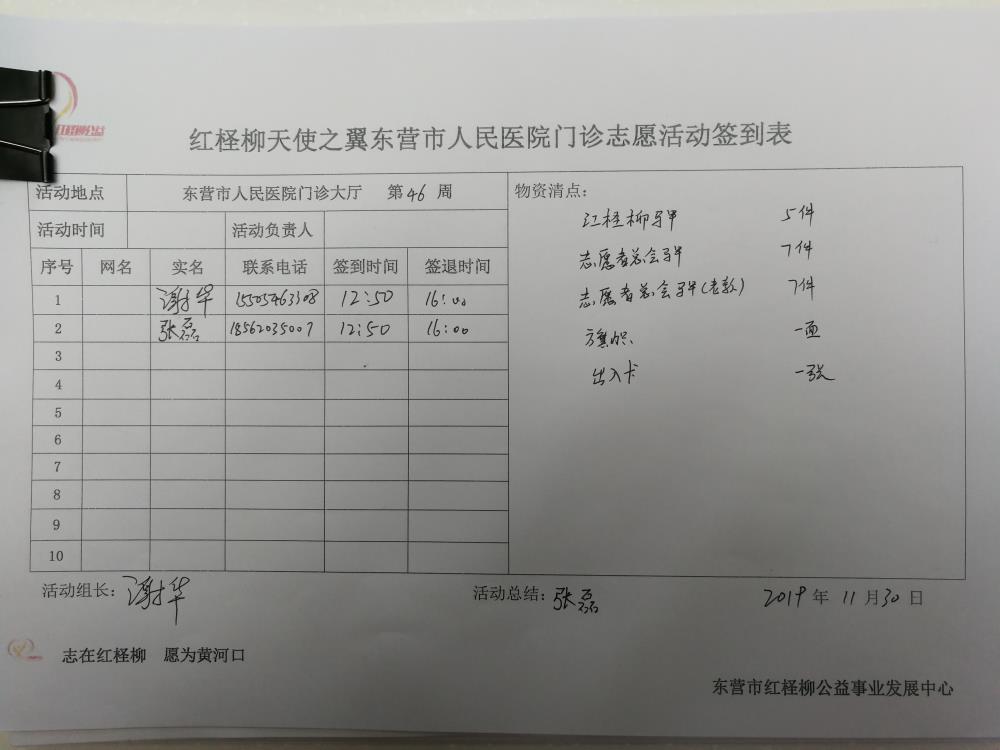 红柽柳公益
红柽柳天使之翼东营市人民医院门诊志愿活动签到表
活动地点 东营市人民医院门诊大厅 第46周
活动时间 活动负责人
序号 网名 实名 联系电话 签到时间 签退时间
1 谢华 15505463308 12:50 16:00
2 张磊 18562035007 12:50 16:00
3
4
5
6
7
8
9
10
物资清点:
红柽柳马甲 5件
志愿者总会马甲 7件
志愿者总会马甲(老款) 7件
旗帜 一面
出入卡 一张
活动组长: 谢华 活动总结: 张磊 2019年11月30日
志在红柽柳 愿为黄河口
东营市红柽柳公益事业发展中心